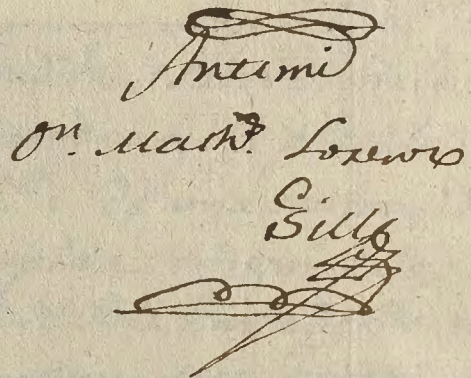 Antemi
Dn. Mathº. Lorenzo
Sillo